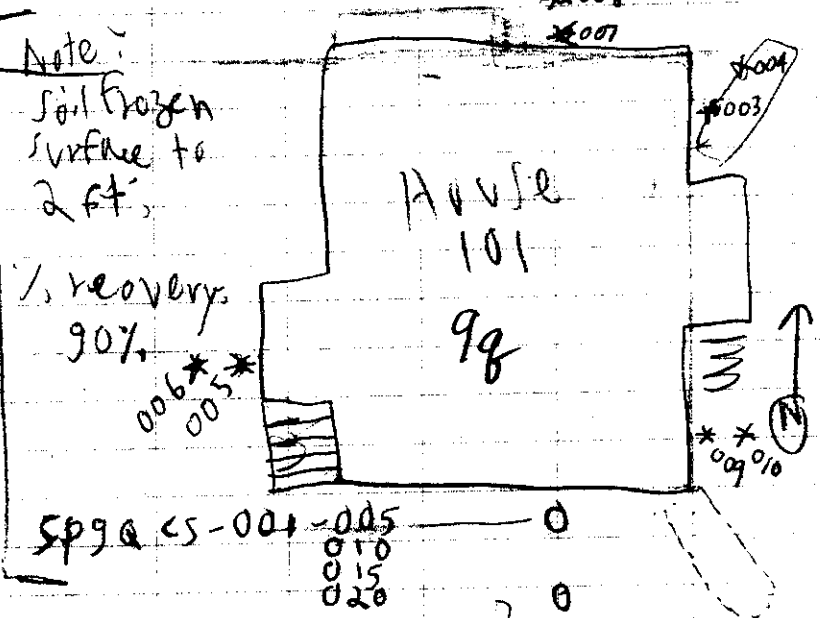 007
Note:
Soil frozen
surface to
2 ft.
% reovery.
90%.
004
003
House
101
9q
006
005
N
009 010
Sp9q cs-001-005 0
010
015
020 0